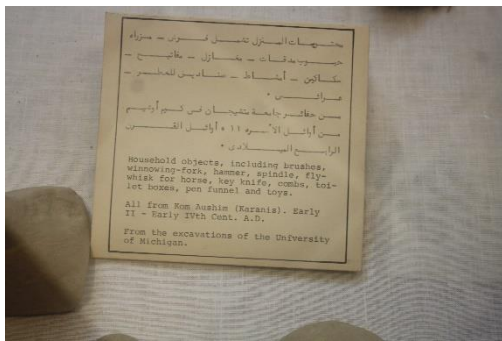 محتويات المنزل تشمل فرش – مزراه
حبوب مدقات – مغازل – مفاتيح –
سكاكين – أمشاط – صناديق للعطر –
عرائس •
من حفائر جامعة متشيجان فى كوم أوشيم
من أوائل الـ ١١ • أوائل القرن
الرابع الميلادى •
Household objects, including brushes,
winnowing-fork, hammer, spindle, fly-
whisk for horse, key knife, combs, toi-
let boxes, pen funnel and toys.
All from Kom Aushim (Karanis). Early
II - Early IVth Cent. A.D.
From the excavations of the University
of Michigan.